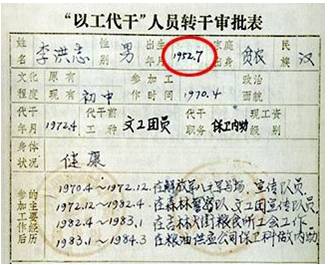 “以工代干”人员转干审批表
姓名 李洪志 性别 男 出生年月 1952.7 家庭出身 贫农 民族 汉
文化程度 原有 现有 初中 参加工作时间 1970.4 政治面貌
代干年月 1972.4 代干前工种 文工团员 代干职务 保卫内勤 现工资级别
身体状况 健康
参加工作后的主要经历
1970.4~1972.12. 在解放军八二军马场, 宣传队员
1972.12~1982.4 在森林警察队 文工团宣传队员
1982.4~1983.1 在吉林大街粮食所工会工作
1983.1~1984.3 在粮油供应公司保卫科做内勤